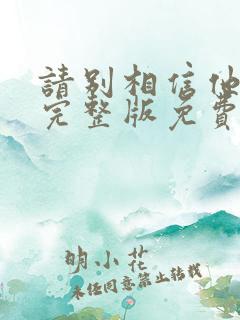 請别相信他
完整版免費
明小花
未经同意禁止转载